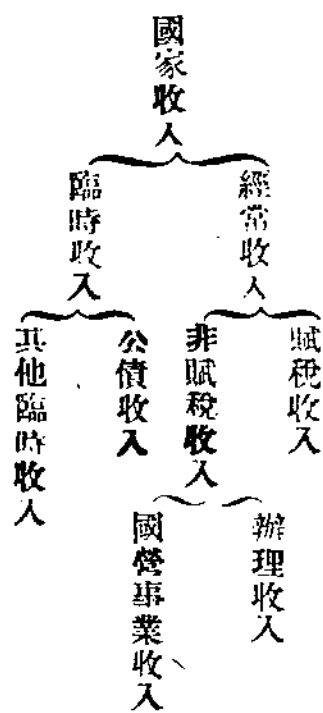 國家收入
經常收入
臨時收入
賦稅收入
非賦稅收入
公債收入
其他臨時收入
辦理收入
國營事業收入